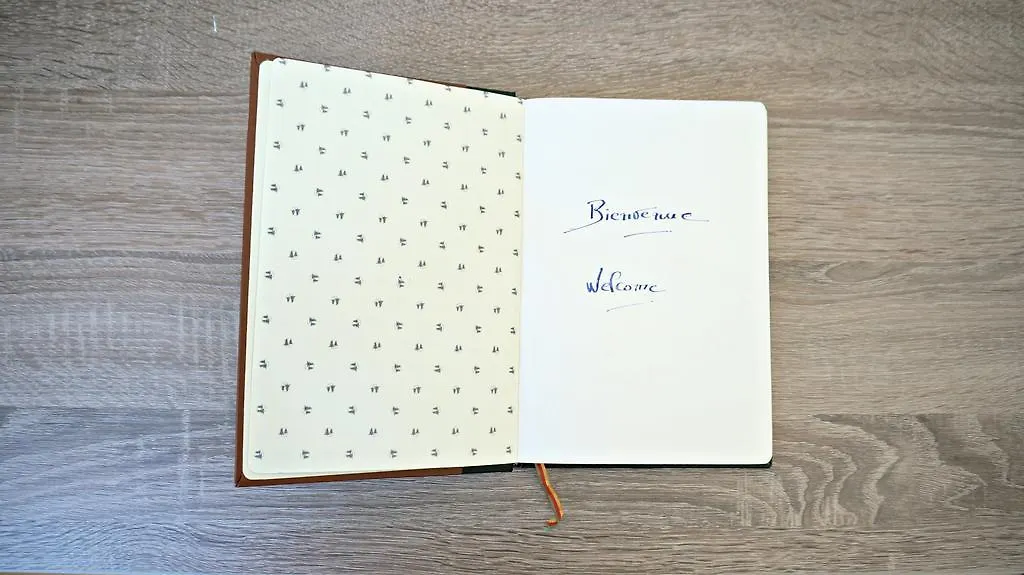 Bienvenue
Welcome